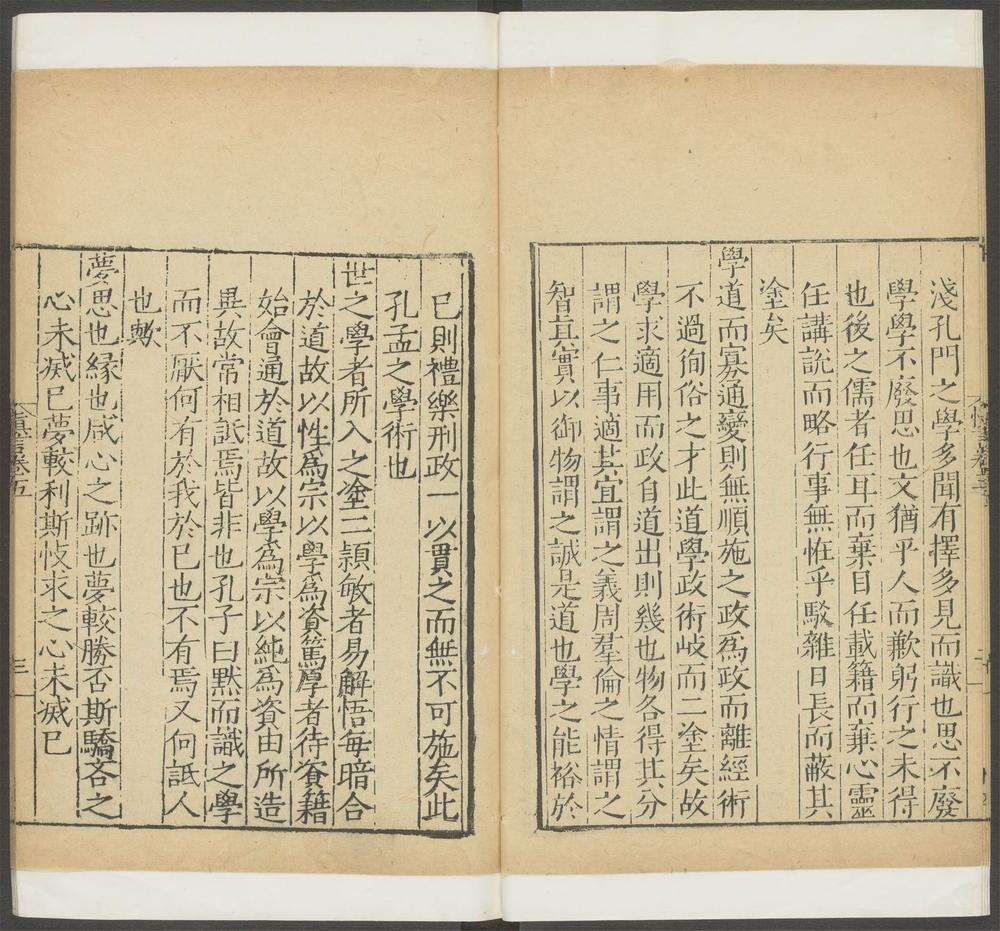 淺孔門之學多聞有擇多見而識也思不廢
學學不廢思也文猶乎人而歉躬行之未得
也後之儒者任耳而棄目任載籍而棄心靈
任講說而略行事無恠乎駁雜日長而蔽其
塗矣
學道而寡通變則無順施之政為政而離經術
不過徇俗之才此道學政術岐而二塗矣故
學求適用而政自道出則幾也物各得其分
謂之仁事適其宜謂之義周羣倫之情謂之
智真實以御物謂之誠是道也學之能裕於
巳則禮樂刑政一以貫之而無不可施矣此
孔孟之學術也
世之學者所入之塗二穎敏者易解悟每暗合
於道故以性為宗以學為資篤厚者待資籍
始會通於道故以學為宗以純為資由所造
異故常相詆焉皆非也孔子曰默而識之學
而不厭何有於我於巳也不有焉又何詆人
也歟
夢思也緣也咸心之跡也夢較勝否斯驕吝之
心未滅巳夢較利斯忮求之心未滅巳
慎言卷五
三